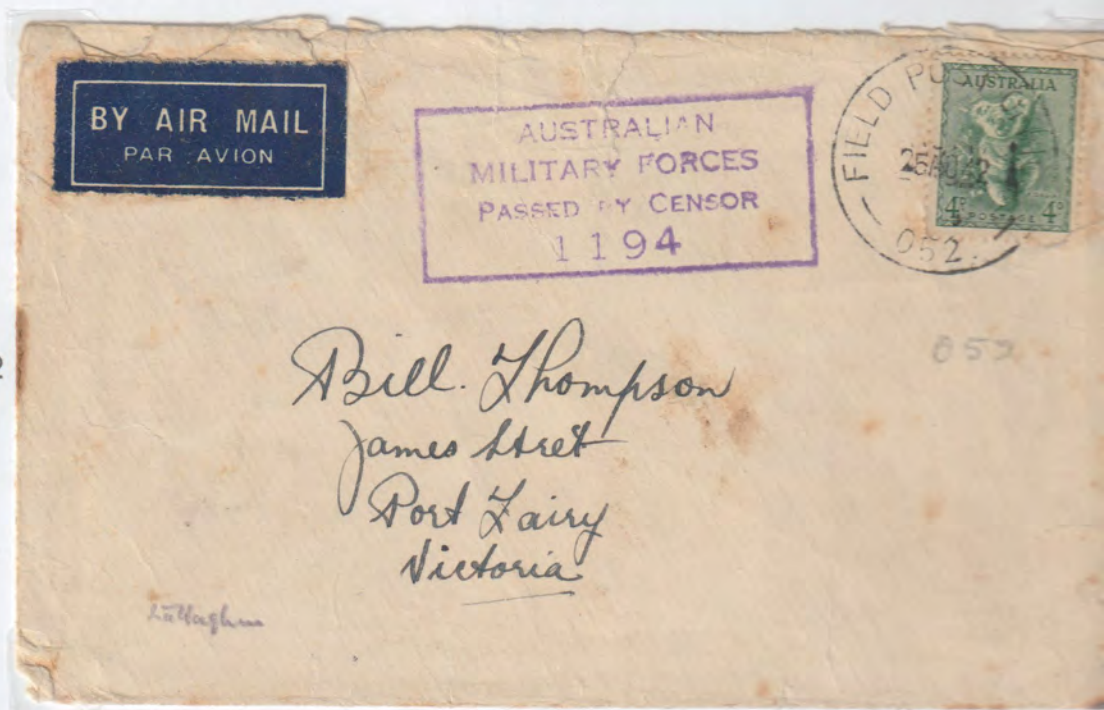 BY AIR MAIL
PAR AVION
AUSTRALIAN
MILITARY FORCES
PASSED BY CENSOR
1194
FIELD POS
052.
AUSTRALIA
4D POSTAGE 4D
052
Bill. Thompson
James Street
Port Fairy
Victoria